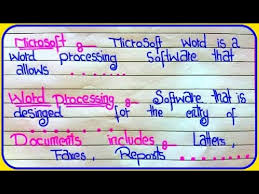 Microsoft :- Microsoft Word is a
word processing software that
allows ......
Word Processing :- Software that is
desinged for the entry of
......
Documents includes :- Latters,
Faxes, Reports ......